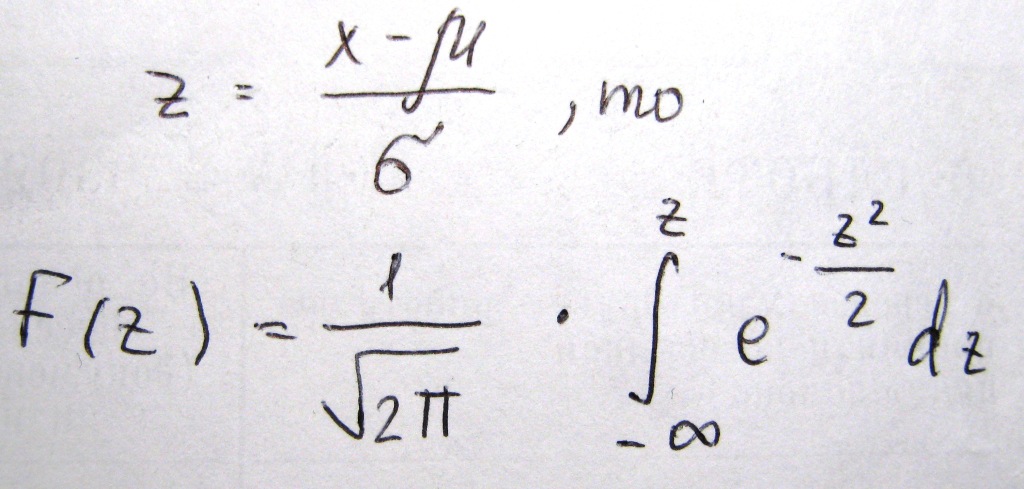 z = (x - μ)/σ , то
F(z) = 1/√(2π) · ∫_{-∞}^{z} e^{-z²/2} dz